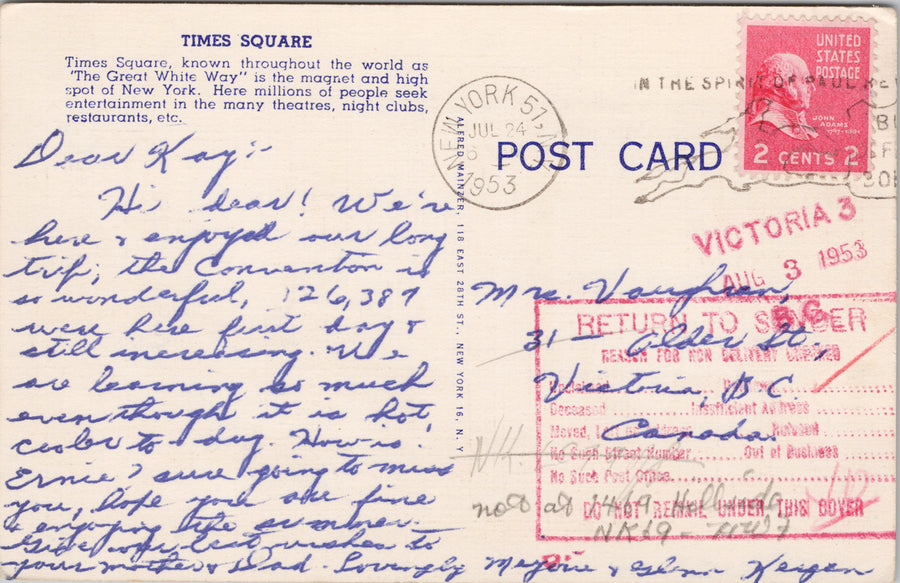 TIMES SQUARE
Times Square, known throughout the world as
"The Great White Way" is the magnet and high
spot of New York. Here millions of people seek
entertainment in the many theatres, night clubs,
restaurants, etc.
Dear Kay:-
Hi dear! We're
here & enjoyed our long
trip; the Convention is
so wonderful, 126,387
were here first day &
still increasing. We
are learning so much
even though it is hot
cooler to day. How is
Ernie? sure going to miss
you, hope you are fine
& enjoying the summer.
Give our best wishes to
your mother & Dad. Lovingly Marjorie & Glenn
ALFRED MAINZER, 118 EAST 28TH ST., NEW YORK 16, N. Y.
NEW YORK 51, N.Y.
JUL 24
1953
POST CARD
IN THE SPIRIT OF PAUL REV
UNITED
STATES
POSTAGE
JOHN
ADAMS
1797-1801
2 CENTS 2
VICTORIA 3
AUG 3 1953
B.C.
Mrs. Vaughan,
31 - Alder St.,
Victoria, B.C.
Canada.
RETURN TO SENDER
REASON FOR NON DELIVERY CHECKED
Unclaimed
Deceased Insufficient Address
Moved, Left no Address Refused
No Such Street Number Out of Business
No Such Post Office
DO NOT REMAIL UNDER THIS COVER
not at 2419
NK19